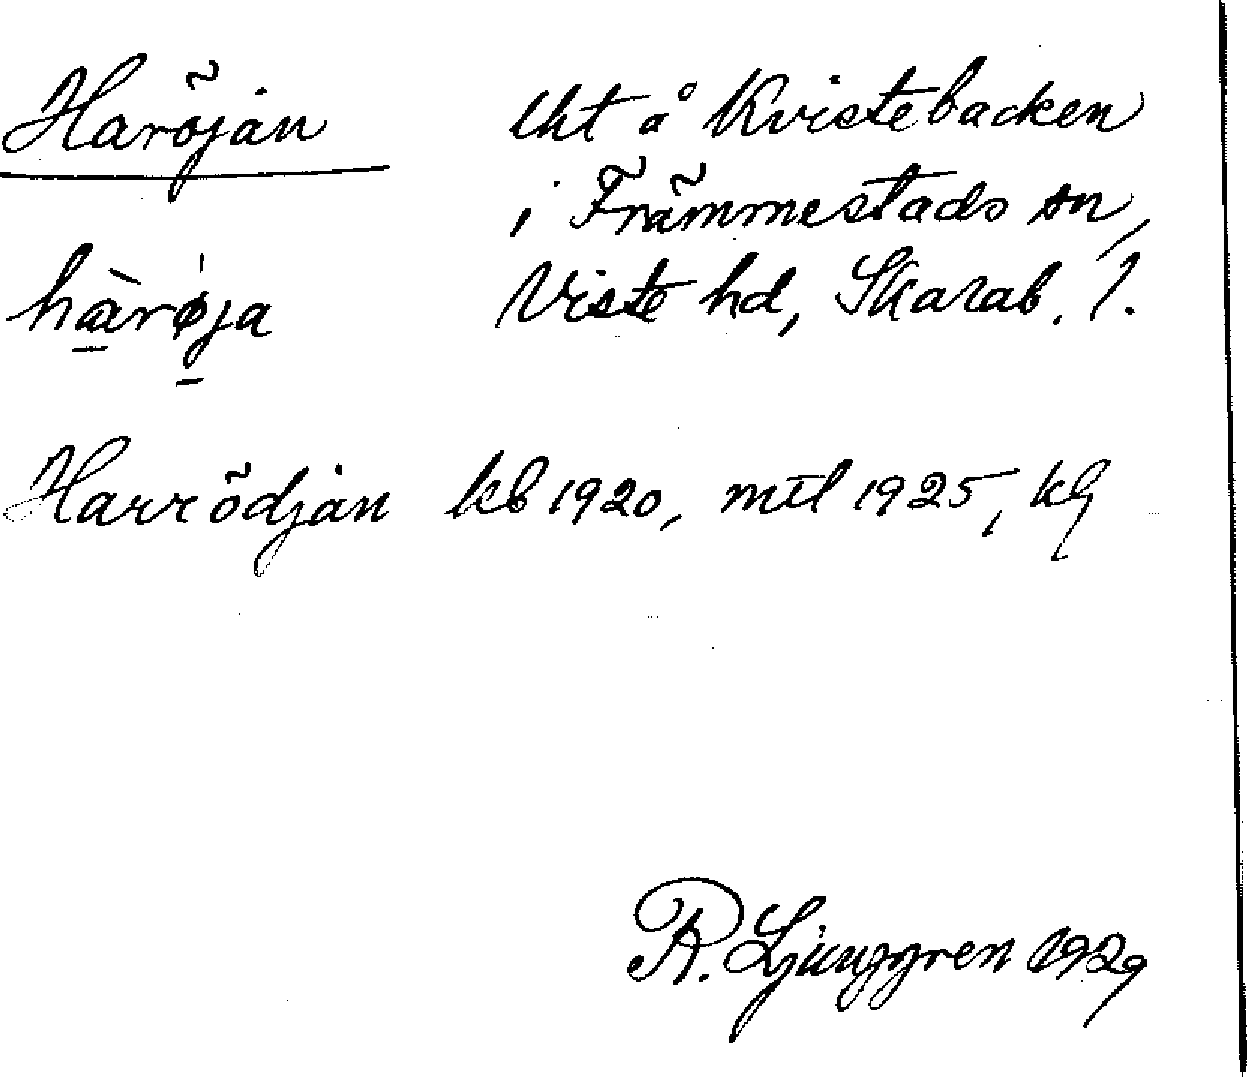 Haröjan lht å Kvistebacken
i Främmestads sn,
hàrøja Viste hd, Skarab. l.
Harrödjan kb 1920, mtl 1925, kg
R. Ljunggren 1929